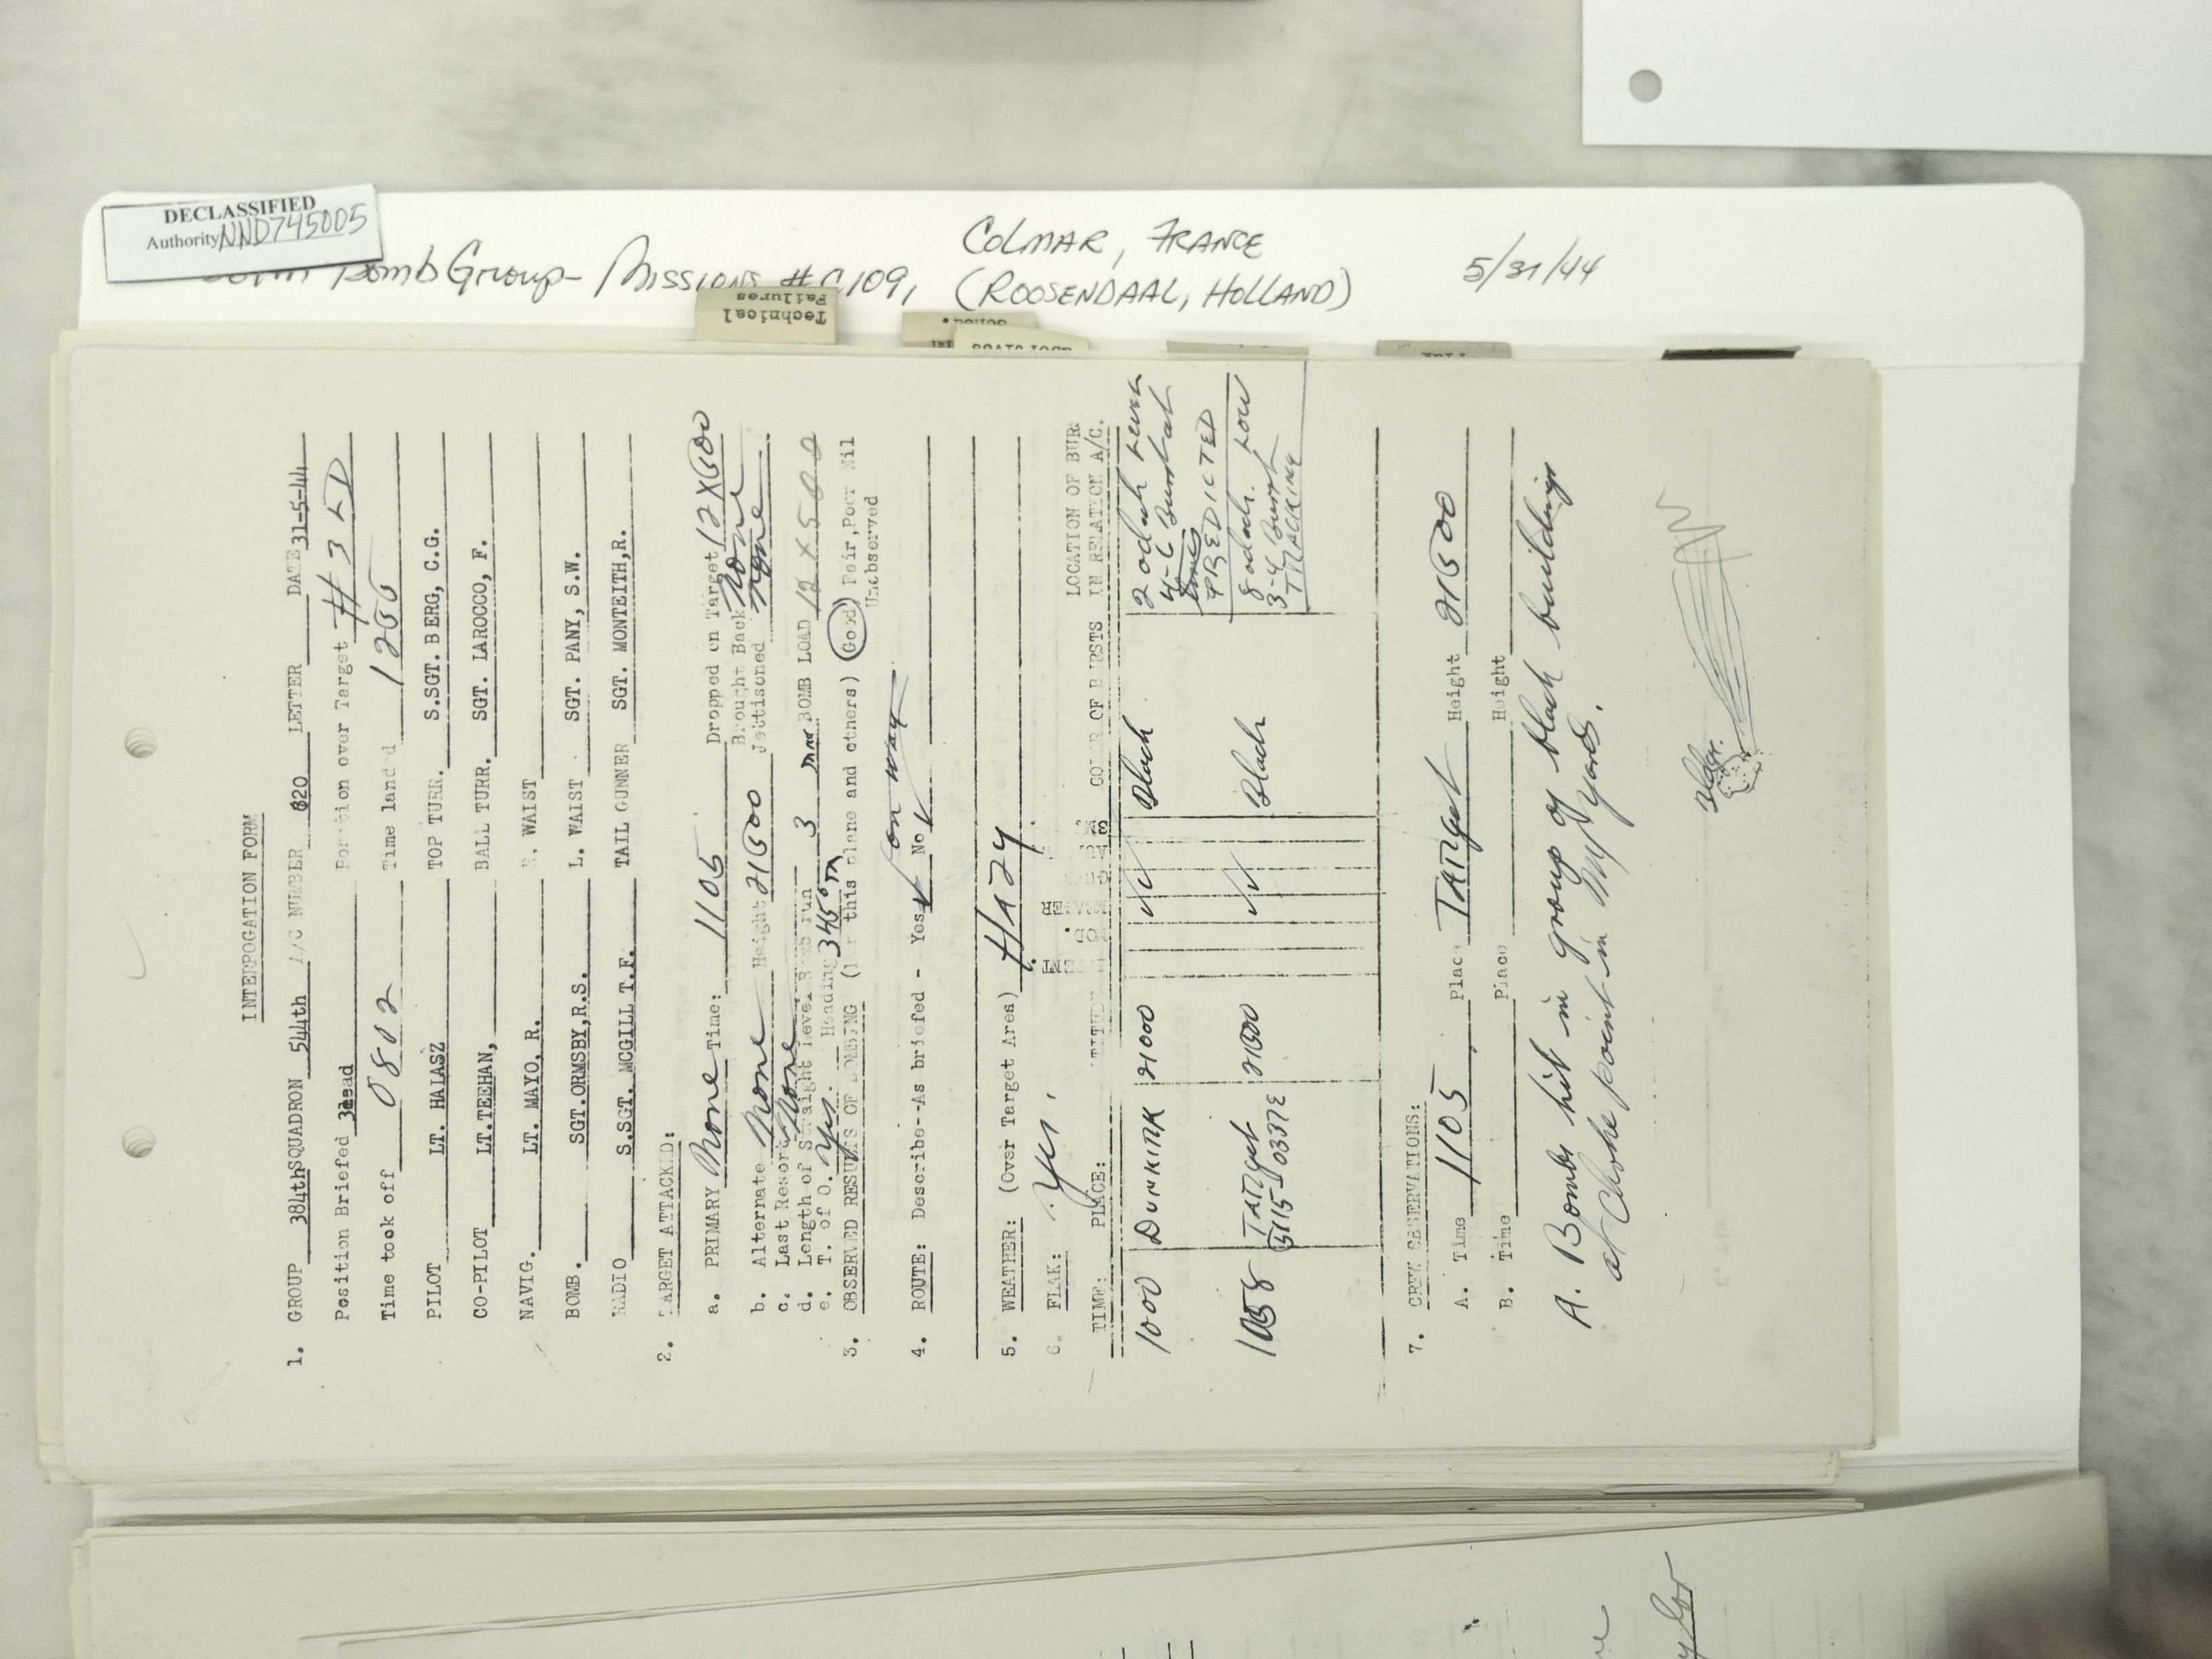 DECLASSIFIED
Authority NND745005
Bomb Group - Missions #109, COLMAR, FRANCE 5/31/44
(ROOSENDAAL, HOLLAND)
Technical
Failures
INTERROGATION FORM
1. GROUP 384th SQUADRON 544th A/C NUMBER 820 LETTER DATE 31-5-44
Position Briefed 3 lead Position over Target #3 LD
Time took off 0802 Time landed
PILOT LT. HALASZ TOP TURR. S.SGT. BERG, C.G.
CO-PILOT LT.TEEHAN, BALL TURR. SGT. LAROCCO, F.
NAVIG. LT. MAYO, R. R. WAIST
BOMB. SGT.ORMSBY,R.S. L. WAIST SGT. PANY, S.W.
RADIO S.SGT. MCGILL T.F. TAIL GUNNER SGT. MONTEITH,R.
2. TARGET ATTACKED:
a. PRIMARY None Time: 1105 Dropped on Target 12X500
Brought Back None
b. Alternate None Height 21500 Jettisoned None
c. Last Resort None
d. Length of Straight level Bomb run 3 min BOMB LOAD 12 X 500
e. T. of O. Yes. Heading 345°
3. OBSERVED RESULTS OF BOMBING (For this plane and others) Good, Fair, Poor Nil
Unobserved
4. ROUTE: Describe--As briefed - Yes No on way
5. WEATHER: (Over Target Area) Hazy
6. FLAK: Yes.
TIME: PLACE: COLOR OF BURSTS LOCATION OF BUR.
IN RELATION A/C.
1000 DUNKIRK 21000 Black 2 oclock Level
PREDICTED
1058 TARget 21500 Black 8 oclock. Low
5115-0337E 3-4 Burst
TRACKING
7. CREW OBSERVATIONS:
A. Time 1105 Place TARget Height 21500
B. Time Place Height
A. Bombs hit in group of black buildings
at Choke point in M/Yards.